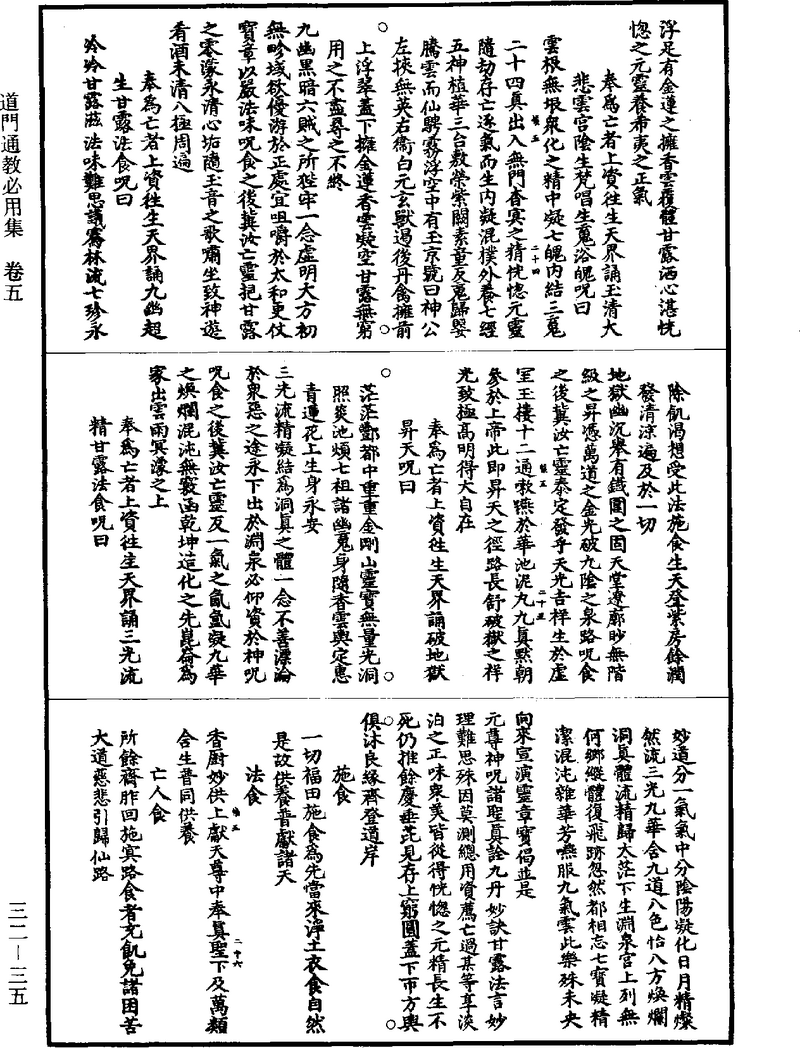 道門通教必用集 卷五
三二—三五
浮足有金蓮之擁香雲覆體甘露洒心湛恍
惚之元靈養希夷之正氣
奉為亡者上資往生天界誦玉清大
悲雲宮陰生梵唱生䰟浴魄呪曰
雲根無垠衆化之精中凝七魄内結三䰟
二十四真出入無門杳冥之精恍惚元靈
隨劫存亡逐氣而生内凝混樸外養七經
五神植華三台敷榮紫闕素童反䰟歸嬰
騰雲而仙騁霧浮空中有玉京號曰神公
左挾無英右衛白元玄獸遏後丹禽擁前
上浮翠蓋下擁金蓮香雲凝空甘露無窮
用之不盡尋之不終
九幽黑暗六賊之所狴牢一念虛明大方初
無畛域欲優游於正處宜咀嚼於太和更仗
寶章以嚴法味呪食之後冀汝亡靈挹甘露
之零濛永清心垢隨玉音之歌嘯坐致神遊
肴酒未清八極周遍
奉為亡者上資往生天界誦九幽超
生甘露法食呪曰
泠泠甘露滋法味難思議騫林流七珍永
除飢渴想受此法施食生天登紫房餘潤
發清涼遍及於一切
地獄幽沉舉有鐵圍之固天堂遼廓眇無階
級之昇憑萬道之金光破九陰之泉路呪食
之後冀汝亡靈泰定發乎天光吉祥生於虛
室玉樓十二通嗽嚥於華池泥丸九真黙朝
參於上帝此即昇天之徑路長舒破獄之祥
光致極高明得大自在
奉為亡者上資徃生天界誦破地獄
昇天呪曰
茫茫酆都中重重金剛山靈寶無量光洞
照炎池煩七祖諸幽䰟身隨香雲輿定惠
青蓮花上生身永安
三光流精凝結為洞真之體一念不善漂淪
於衆惡之途永下出於淵泉必仰資於神呪
呪食之後冀汝亡靈反一氣之氤氳凝九華
之煥爛混沌無竅函乾坤造化之先崑崙為
家出雲雨冥濛之上
奉為亡者上資徃生天界誦三光流
精甘露法食呪曰
妙道分一氣氣中分陰陽凝化日月精燦
然流三光九華含九道八色恰八方煥爛
洞真體流精歸大茫下生淵泉宮上列無
何鄉縱體復飛跡忽然都相忘七寶凝精
潔混沌雜華芳嚥服九氣雲此樂殊未央
向來宣演靈章寶偈並是
元尊神呪諸聖真詮九丹妙訣甘露法言妙
理難思殊因莫測總用資薦亡過某等享淡
泊之正味衆羙皆從得恍惚之元精長生不
死仍推餘慶垂芘見存上窮圓蓋下帀方輿
俱沐良緣齊登道岸
施食
一切福田施食為先當來淨土衣食自然
是故供養普獻諸天
法食
香厨妙供上獻天尊中奉真聖下及萬類
含生普同供養
亡人食
所餘齋胙回施冥路食者充飢免諸困苦
大道慈悲引歸仙路